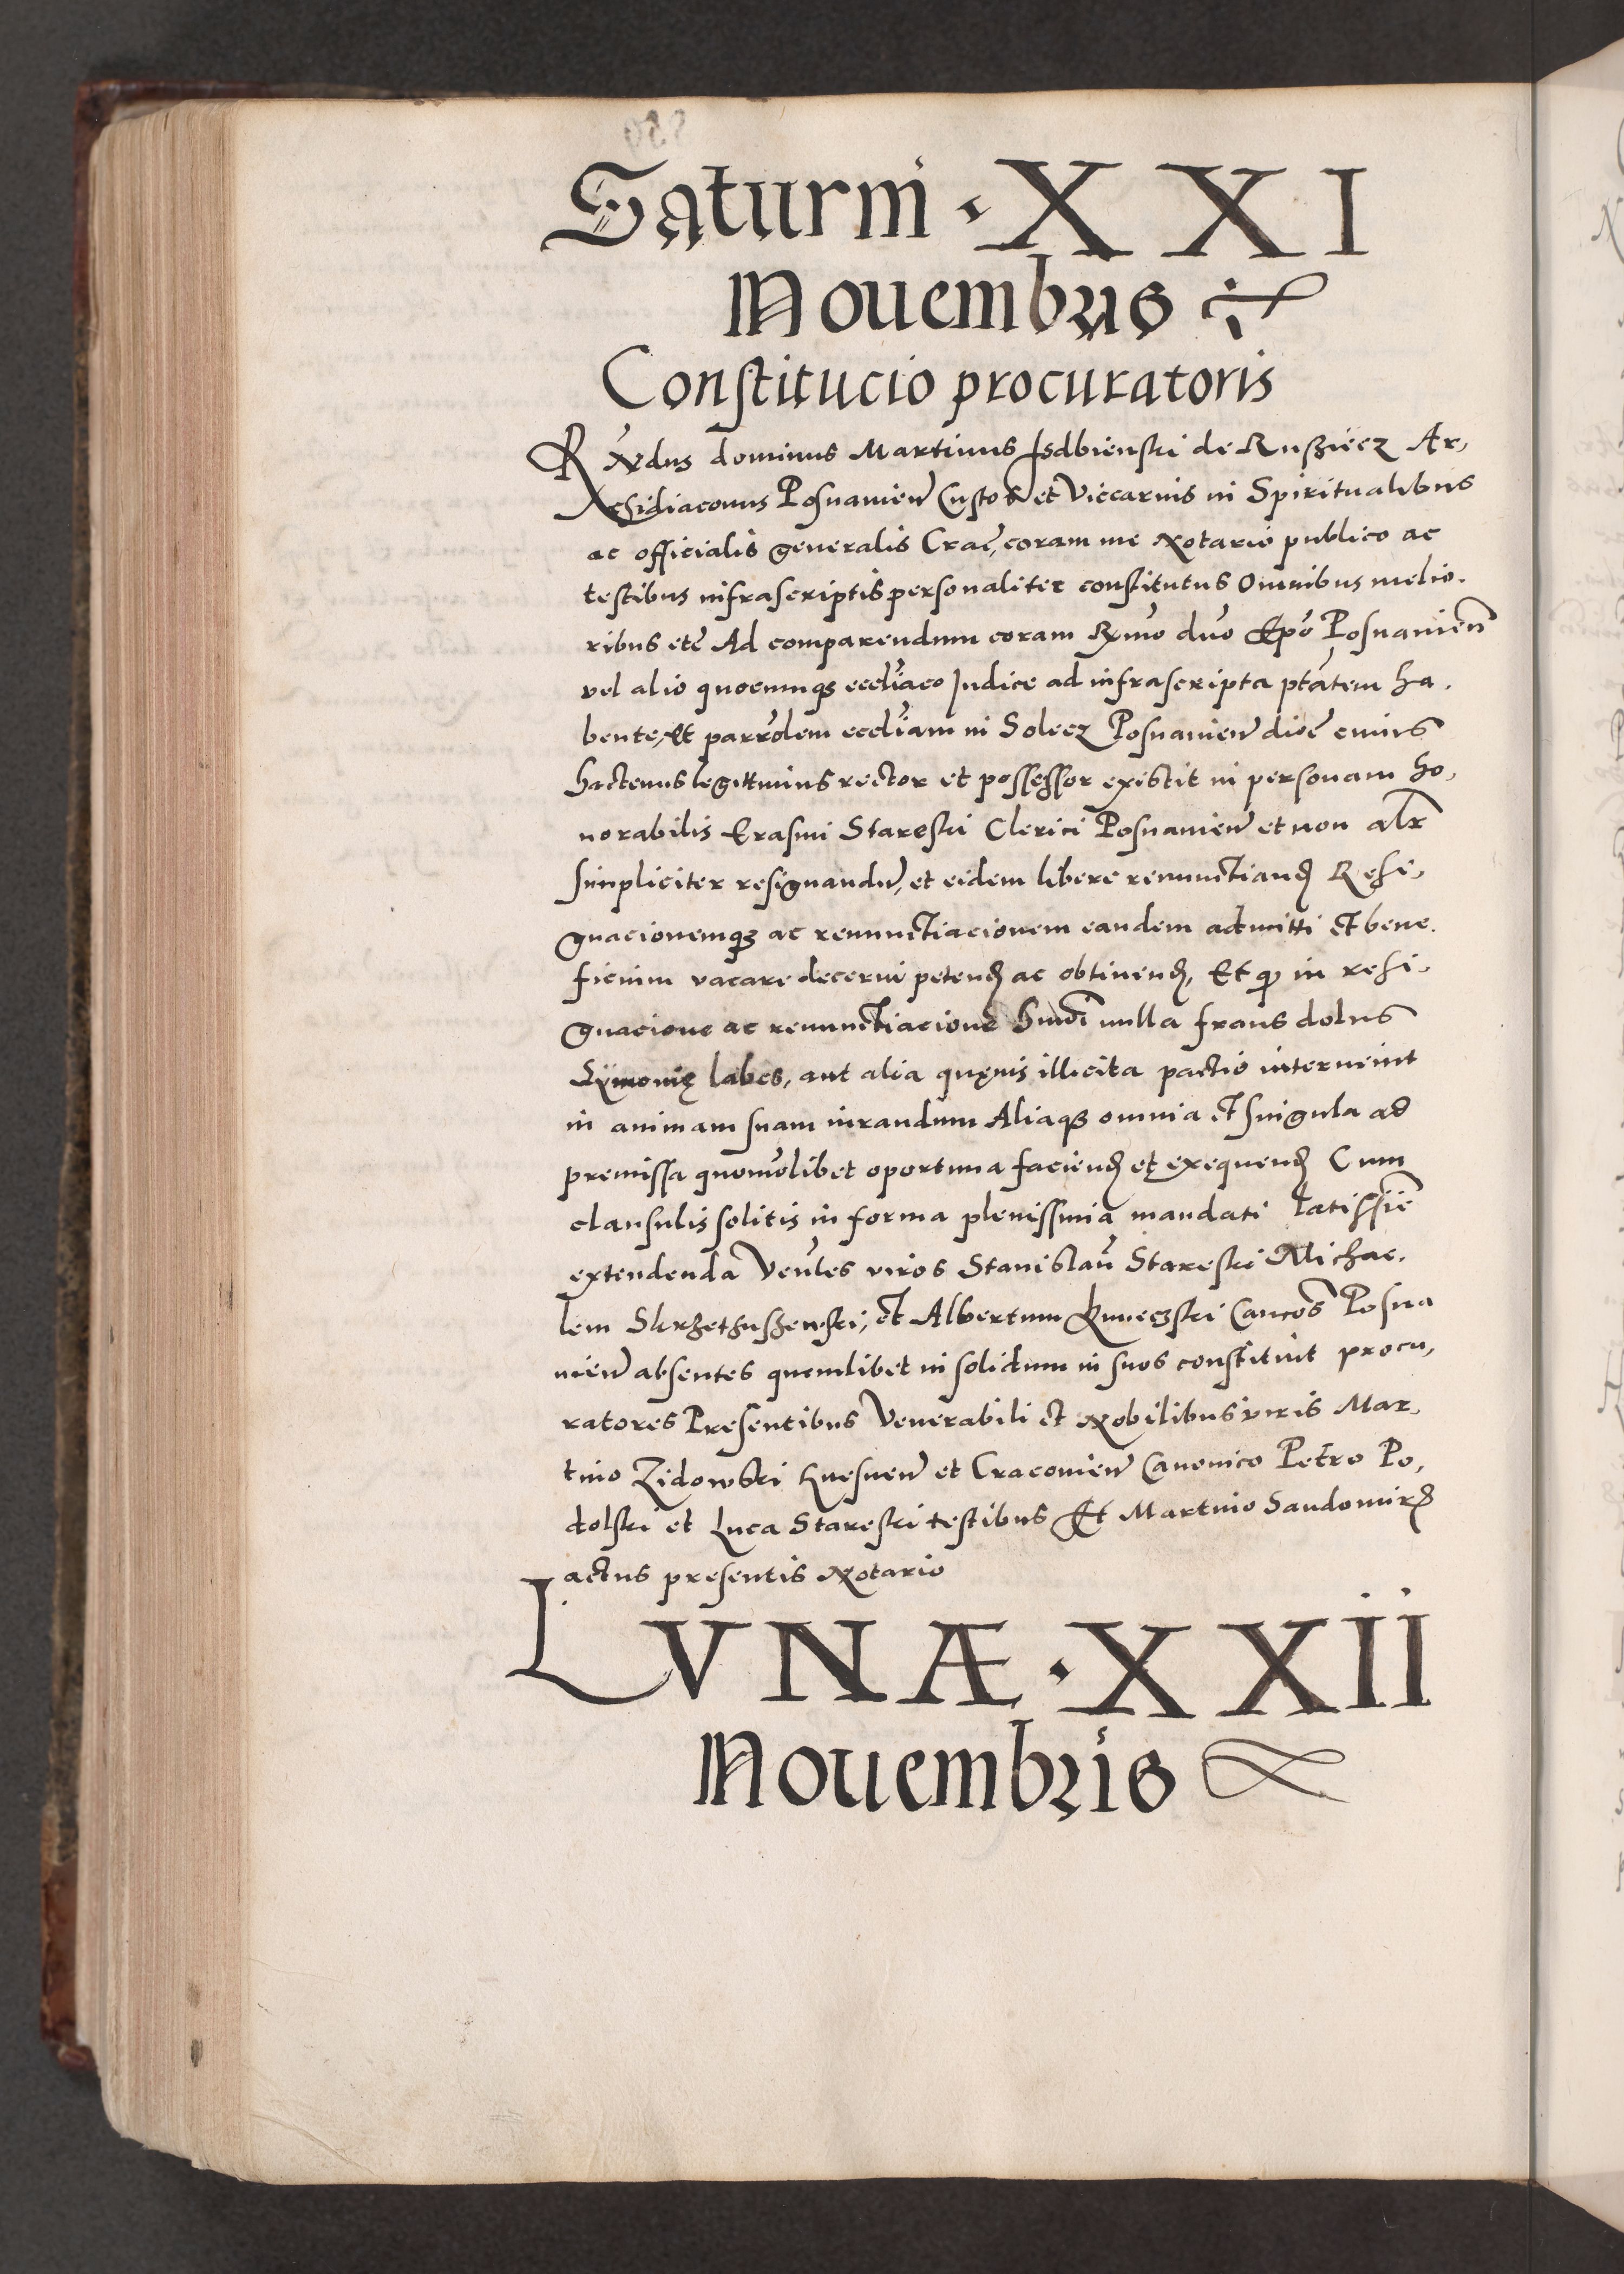 Saturni · XXI
Nouembris
Constitucio procuratoris
Rndus dominus Martinus Isdbienski de Rusziecz Ar,
chidiaconus Posnanien Custos et Viccarius in Spiritualibus
ac officialis generalis Crac, coram me Notario publico ac
testibus infrascriptis personaliter constitutus Omnibus melio.
ribus etc Ad comparendum coram Rxmo dno Epo Posnanien
vel alio quocunqs eccliaco Judice ad infrascripta ptatem ha.
bente, Et parrolem eccliam in Soleez Posnanien dioc cuius
hactenus legittimus rector et possessor existit in personam ho,
norabilis Erasmi Staręski Clerici Posnanien et non alr
simpliciter resignandu, et eidem libere renunctiand Resi,
gnacionemqz ac renunctiacionem eandem admitti et bene.
ficium vacare decerni petend ac obtinend, Et qz in resi,
gnacione ac renunctiacione hmoi nulla fraus dolus
Symonię labes, aut alia quęuis illicita pactio interueint
in animam suam iurandum Aliaqz omnia et singula ad
premissa quomolibet oportuna faciend et exequend Cum
clausulis solitis in forma plenissima mandati latissie
extendenda Venles viros Stanislau Stareski Michae.
lem Skrzethuszewski, et Albertum Kuneczski Cancos Posna
nien absentes quemlibet in solidum in suos constituit procu,
ratores Presentibus Venerabili et Nobilibus viris Mar,
tino Zidowski Gnesnen et Cracouien Canonico Petro Po,
dolski et Luca Stareski testibus Et Martino Sandomird
actus presentis Notario
LVNÆ · XXII
Nouembris